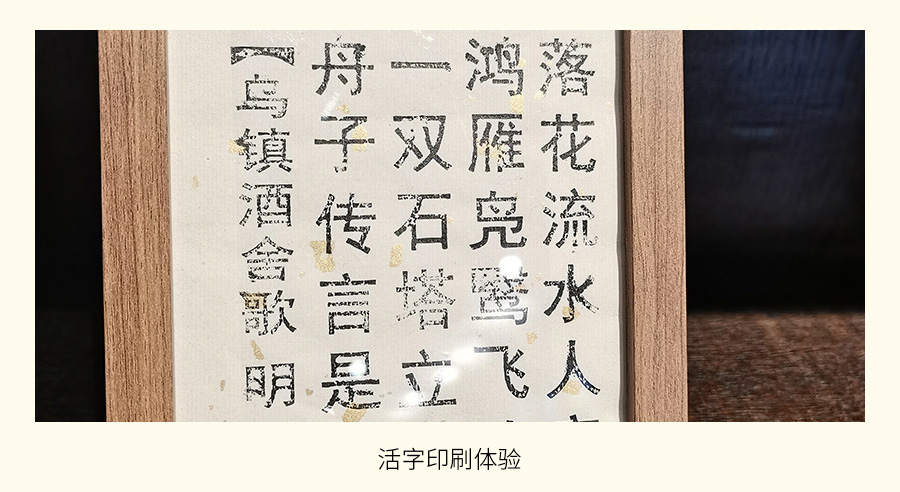 落花流水人
鸿雁凫鹥飞
一双石塔立
舟子传言是
【乌镇酒舍歌 明
活字印刷体验